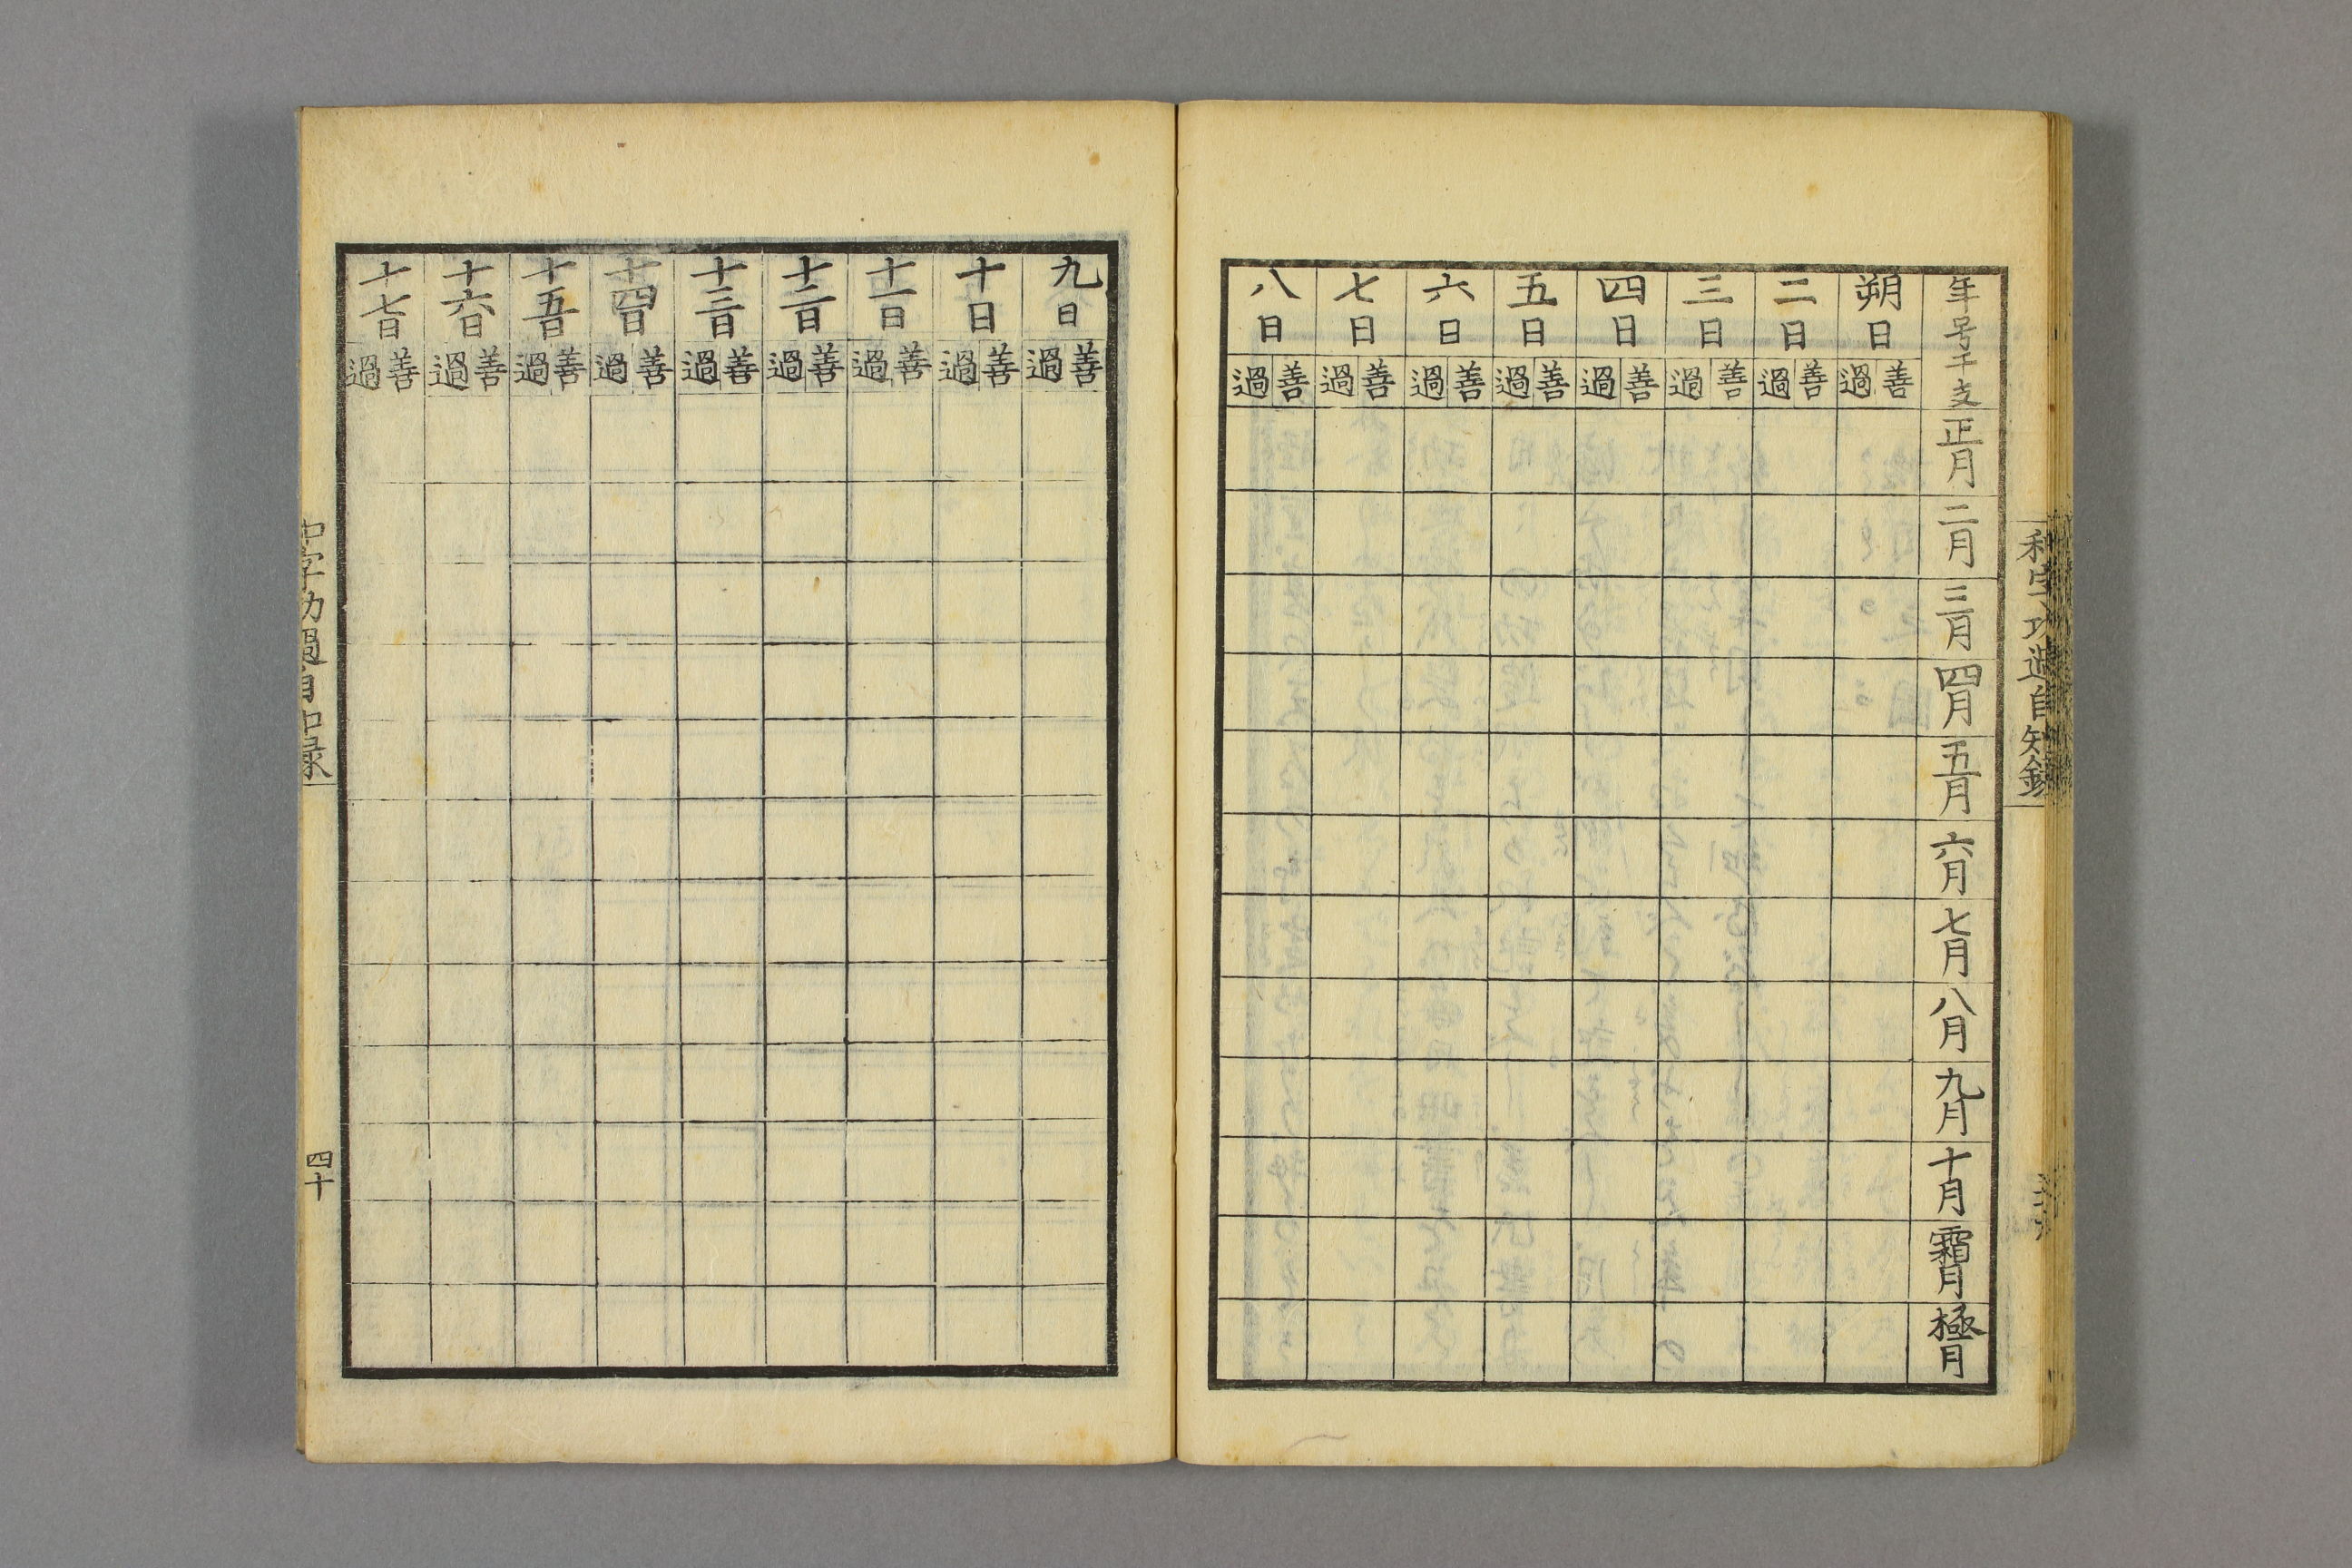 和字功過自知録
年号干支
正月
二月
三月
四月
五月
六月
七月
八月
九月
十月
霜月
極月
朔日
善 過
二日
善 過
三日
善 過
四日
善 過
五日
善 過
六日
善 過
七日
善 過
八日
善 過
九日
善 過
十日
善 過
十一日
善 過
十二日
善 過
十三日
善 過
十四日
善 過
十五日
善 過
十六日
善 過
十七日
善 過
和字功過自知録
四十